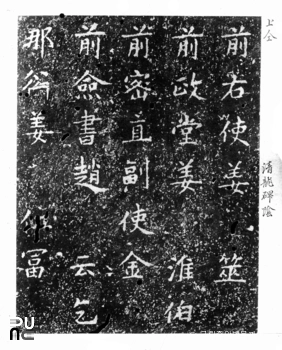 前右使姜 筮
前政堂姜 淮伯
前密直副使金
前僉書趙 云乞
那衍姜 作冨
上仝
清龍碑陰